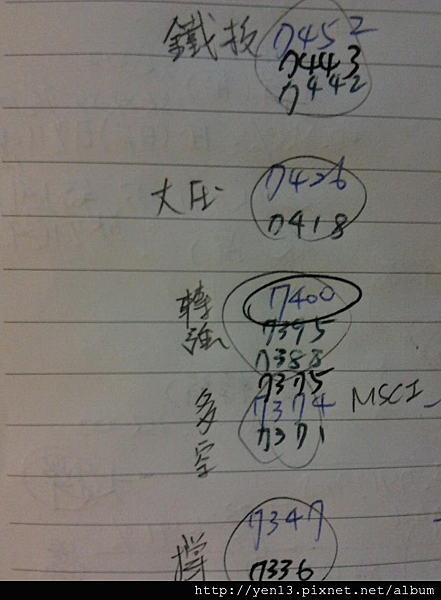 鐵板 7452
7443
7442
大压 7426
7418
轉強 7400
7395
7388
7375
多空 7374 MSCI
7371
撐 7347
7336
http://yen13.pixnet.net/album